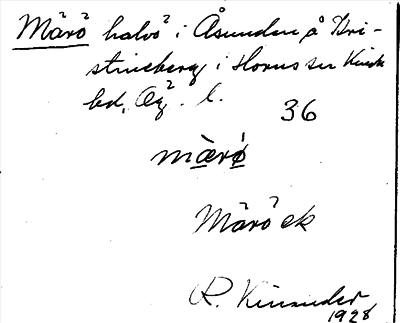 Märö halvö i Åsunden å Kri-
stineberg i Horns sn Kinda
hd, Ög. l.
36
mær̀ö
Märö ek
R. Kinander
1928